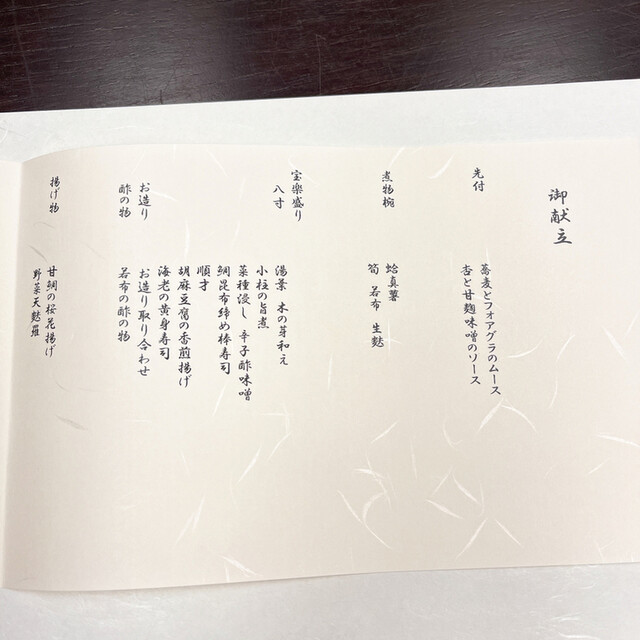 御献立
先付
蕎麦とフォアグラのムース
杏と甘麹味噌のソース
煮物椀
蛤真薯
筍 若布 生麩
宝楽盛り
八寸
湯葉 木の芽和え
小柱の旨煮
菜種浸し 辛子酢味噌
鯛昆布締め棒寿司
順才
胡麻豆腐の香煎揚げ
海老の黄身寿司
お造り
お造り取り合わせ
酢の物
若布の酢の物
揚げ物
甘鯛の桜花揚げ
野菜天麩羅